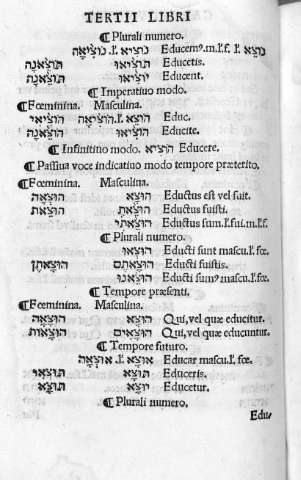 TERTII LIBRI
¶ Plurali numero.
נוֹצִיא ł. נוֹצִיאָה Educemꝰ.m.ł.f.
תּוֹצִיאוּ תּוֹצֶאנָה Educetis.
יוֹצִיאוּ תּוֹצֶאנָה Educent.
¶ Imperatiuo modo.
¶ Fœminina. Masculina.
הוֹצִיאִי הוֹצֵא ł. הוֹצִיאָה Educ.
הוֹצֶאנָה הוֹצִיאוּ Educite.
¶ Infinitino modo. הוֹצִיא Educere.
¶ Passiua voce indicatiuo modo tempore præterito.
¶ Fœminina. Masculina.
הוּצְאָה הוּצָא Eductus est vel suit.
הוּצֵאת הוּצֵאתָ Eductus fuisti.
הוּצֵאתִי Eductus sum.ł.fui.m.ł.f
¶ Plurali numero.
הוּצְאוּ Educti sunt mascu.ł.fœ.
הוּצֵאתֶן הוּצֵאתֶם Educti fuistis.
הוּצֵאנוּ Educti sumꝰ mascu.ł.f.
¶ Tempore præsenti.
¶ Fœminina. Masculina.
הוּצָאָה הוּצָא Qui, vel quæ educitur.
הוּצָאוֹת הוּצָאִים Qui, vel quæ educuntur.
¶ Tempore futuro.
אוּצָא ł. אוּצְאָה Educar mascu.ł. fœ.
תּוּצְאִי תּוּצָא Educeris.
תּוּצָא יוּצָא Educetur.
¶ Plurali numero.
Edue